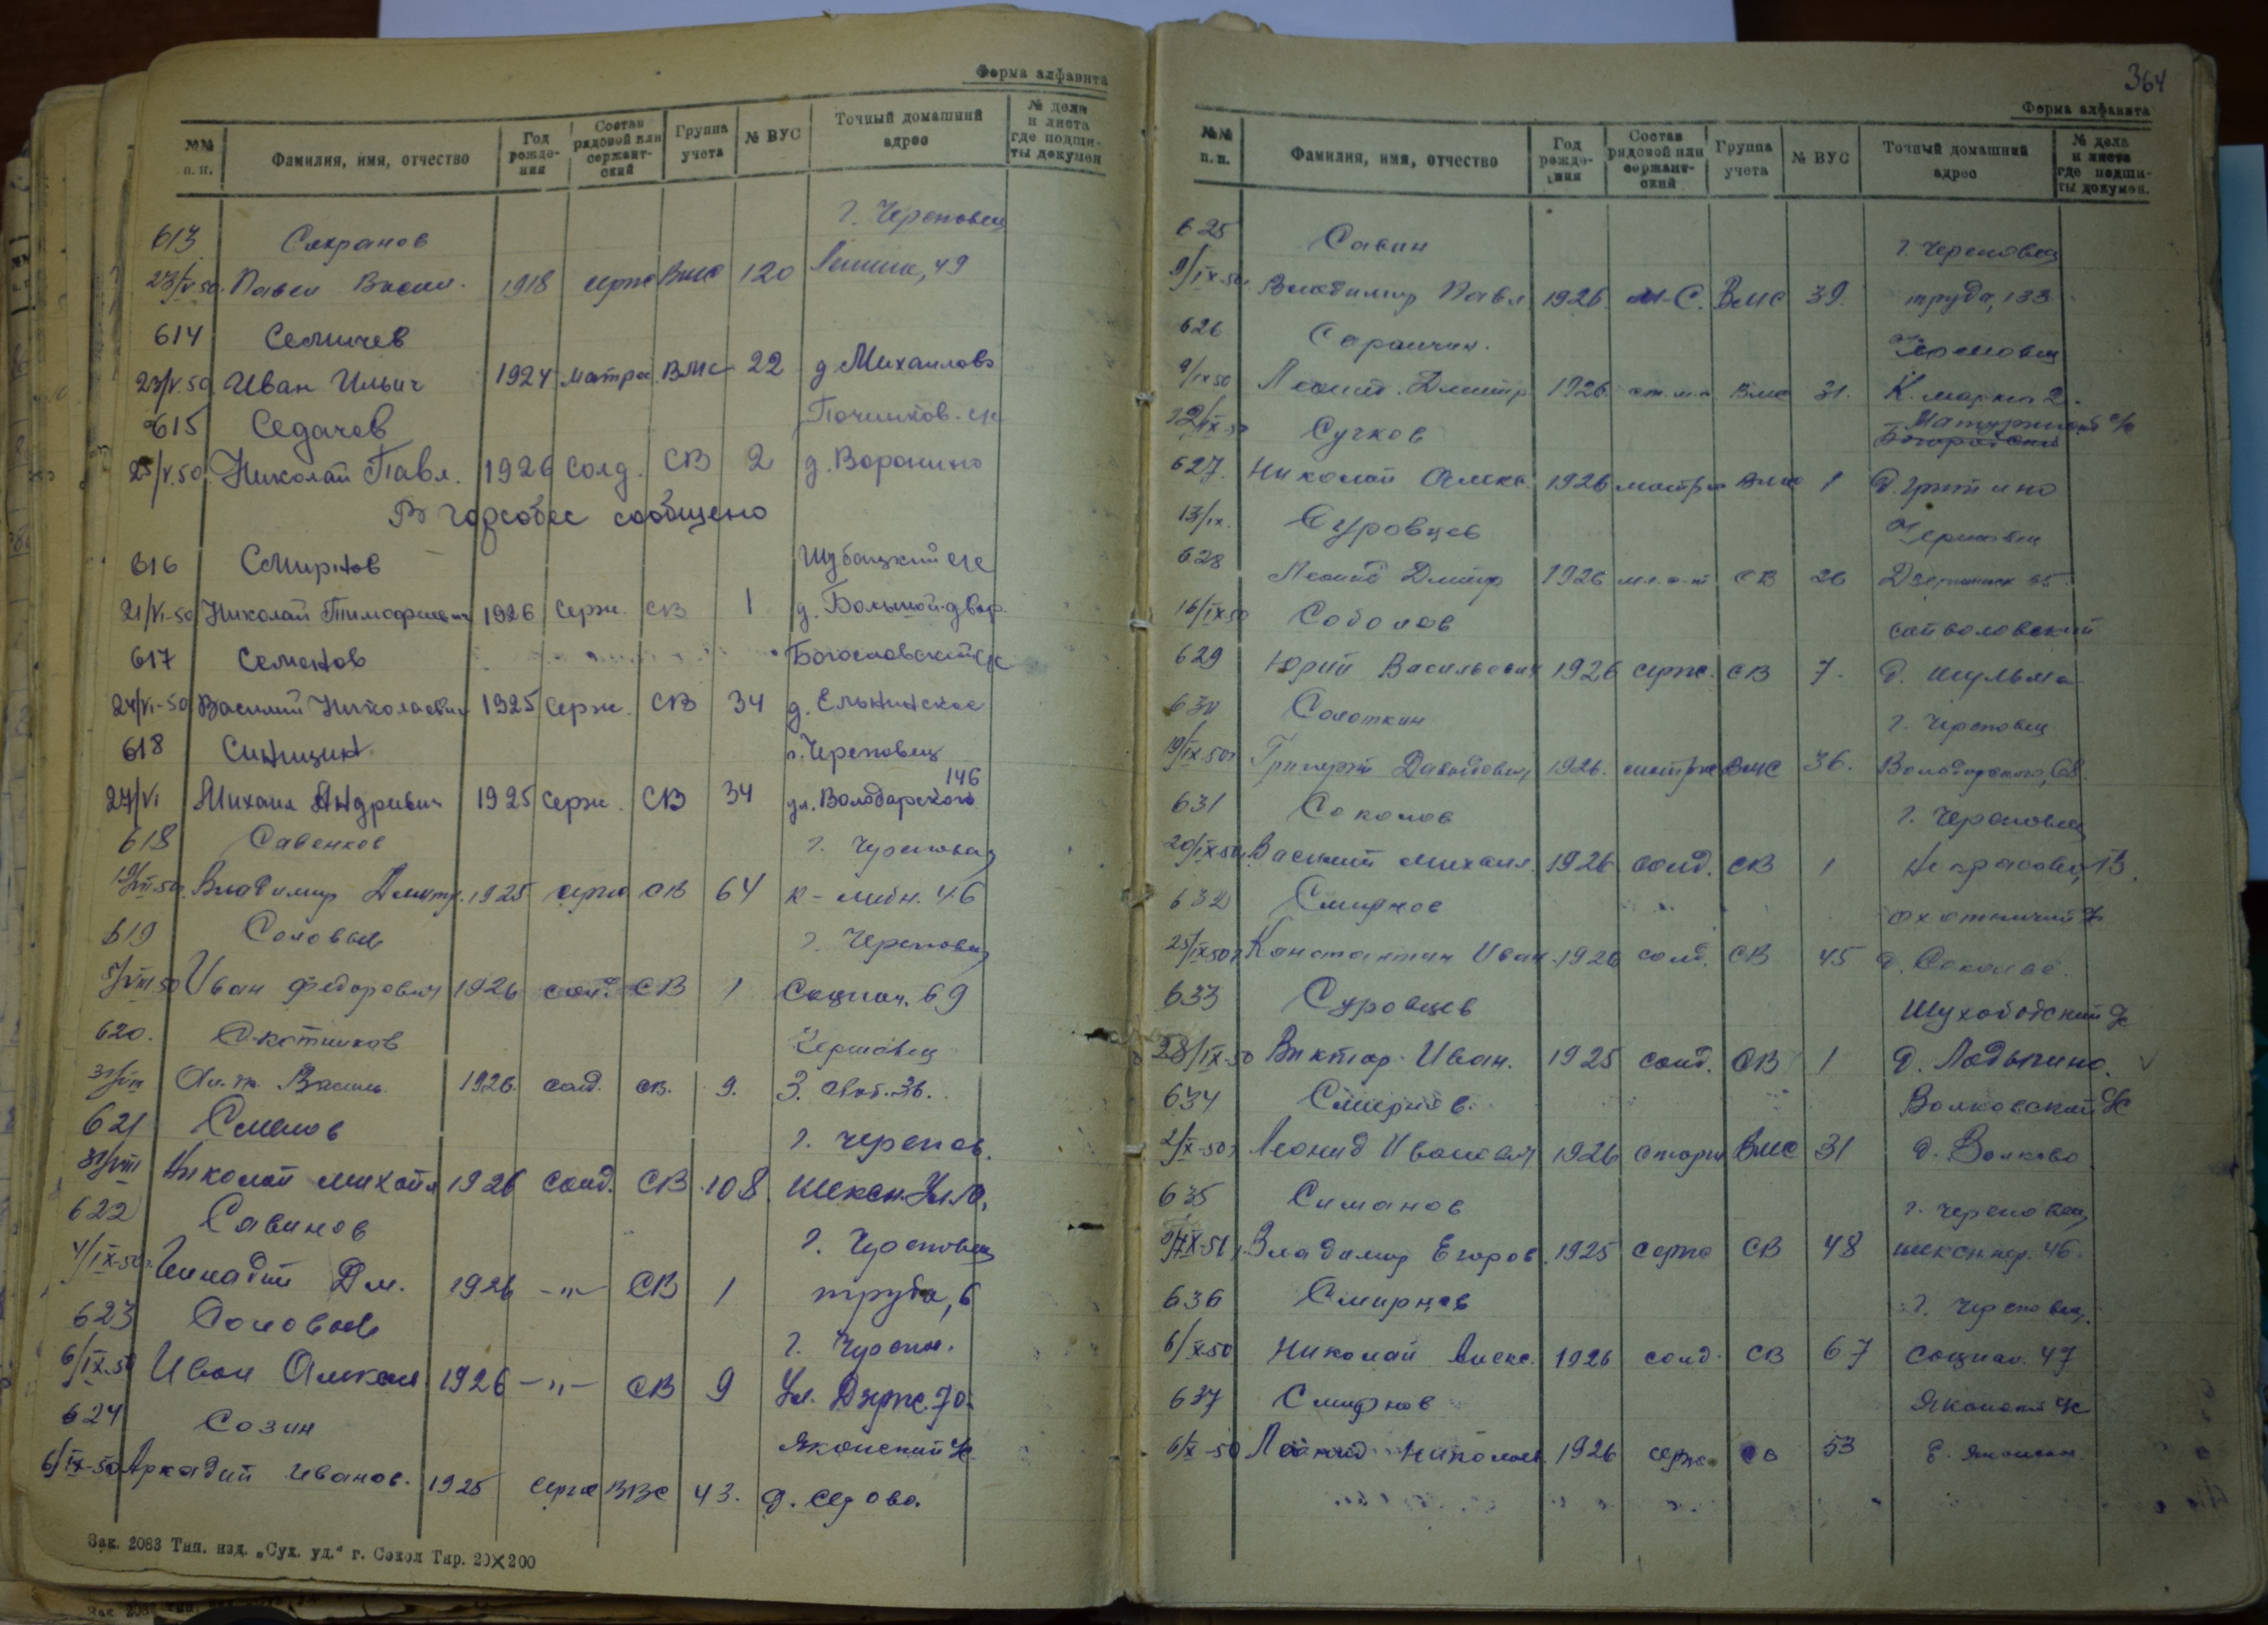 Форма алфавита
№№ п.п. Фамилия, имя, отчество Год рождения Состав рядовой или сержантский Группа учета № ВУС Точный домашний адрес № дела и листа где подшиты докумен
613 Сахранов г. Череповец
23/V.50. Павел Васил. 1918 серж ВМС 120 Ленина, 49
614 Семичев
23/V.50 Иван Ильич 1924 матро. ВМС 22 д Михайлово
615 Седачев Починков. с/с
25/V.50 Николай Павл. 1926 солд. СВ 2 д. Воронино
В горсобес сообщено
616 Смирнов Шубацкий с/с
21/VI-50 Николай Тимофеевич 1926 серж. СВ 1 д. Большой-двор.
617 Семенов Богословский с/с
24/VI-50 Василий Николаевич 1925 серж. СВ 34 д. Ельнинское
618 Синицин г. Череповец
27/VI Михаил Андреевич 1925 серж. СВ 34 ул. Володарского 146
618 Савенков г. Череповец
Владимир Дмитр. 1925 серж СВ 64 к-либн. 46
619 Соловьев г. Череповец
5/VIII 50 Иван Федорович 1926 солд. СВ 1 Социал. 69
620. Скотников Череповец
31/VIII Васил. 1926. солд. св. 9. 3.
621 Семенов г. Черепов.
31/VIII Николай михайл 1926 солд. СВ 108.
622 Савинов г. Череповец
4/IX-50г. Геннадий Дм. 1926 -"- СВ 1 труда, 6
623 Соловьев г. Черепов.
6/IX.50 Иван Алексан 1926 -"- СВ 9 Ул. Держ. 70.
624 Созин Яконский с/с
6/IX-50 Аркадий Иванов. 1925 серж ВВС 43. д. седово.
Зак. 2083 Тип. изд. „Сух. уд.“ г. Сокол Тир. 20×200
364
Форма алфавита
№№ п.п. Фамилия, имя, отчество Год рождения Состав рядовой или сержантский Группа учета № ВУС Точный домашний адрес № дела и листа где подшиты докумен.
625 Савин г. Череповец
9/IX-50г. Владимир Павл. 1926. м-С. ВМС 39. труда, 133
626 Череповец
9/IX 50 Леонид. Дмитр. 1926. ст. м-с ВМС 31. К. маркса 2.
12/IX-50 Сучков
627. Николай Алекс. 1926 матрос ВМС 1
13/IX. Суровцев Череповец
628 Леонид Дмитр 1926 мл. с-т СВ 26
16/IX 50 Соболев
629 Юрий Васильевич 1926 серж. СВ 7. д. шульма
630 Солоткин г. Череповец
19/IX-50г Григорий Давыдович 1926. матрос ВМС 36. Володарского, 68.
631 Соколов г. Череповец
20/IX 50г. Василий михаил. 1926 солд. СВ 1 Некрасова, 13.
632 Смирнов охотничий с/с
25/IX 50г Константин Иван. 1926 солд. СВ 45
633 Суровцев Шухободский с/с
28/IX-50 Виктор Иван. 1925 солд. СВ 1 д. Лодыгино.
634 Смирнов. Волковский с/с
2/X-50г Леонид Иванович 1926 старш ВМС 31 д. Волково
635 Симанов г. Череповец
Владимир Егоров. 1925 серж СВ 48 шексн. пер. 46.
636 Смирнов г. Череповец.
6/X-50 Николай Алекс. 1926 солд. СВ 67 социал. 47
637 Смирнов с/с
6/X-50 Леонид Николаев. 1926 серж св 53